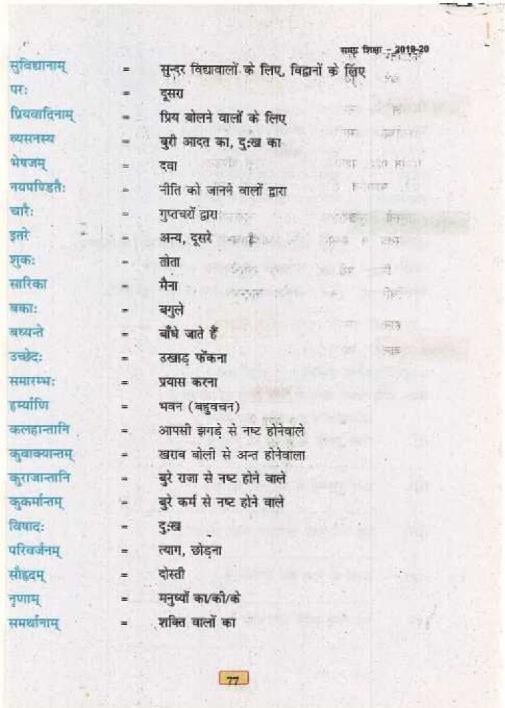 समग्र शिक्षा - 2019-20
सुविद्यानाम् = सुन्दर विद्यावालों के लिए, विद्वानों के लिए
परः = दूसरा
प्रियवादिनाम् = प्रिय बोलने वालों के लिए
व्यसनस्य = बुरी आदत का, दुःख का
भेषजम् = दवा
नयपण्डितैः = नीति को जानने वालों द्वारा
चारैः = गुप्तचरों द्वारा
इतरे = अन्य, दूसरे
शुकः = तोता
सारिका = मैना
बकाः = बगुले
बध्यन्ते = बाँधे जाते हैं
उच्छेदः = उखाड़ फेंकना
समारम्भः = प्रयास करना
हर्म्याणि = भवन (बहुवचन)
कलहान्तानि = आपसी झगड़े से नष्ट होनेवाले
कुवाक्यान्तम् = खराब बोली से अन्त होनेवाला
कुराजान्तानि = बुरे राजा से नष्ट होने वाले
कुकर्मान्तम् = बुरे कर्म से नष्ट होने वाले
विषादः = दुःख
परिवर्जनम् = त्याग, छोड़ना
सौहृदम् = दोस्ती
नृणाम् = मनुष्यों का/की/के
समर्थानाम् = शक्ति वालों का
77